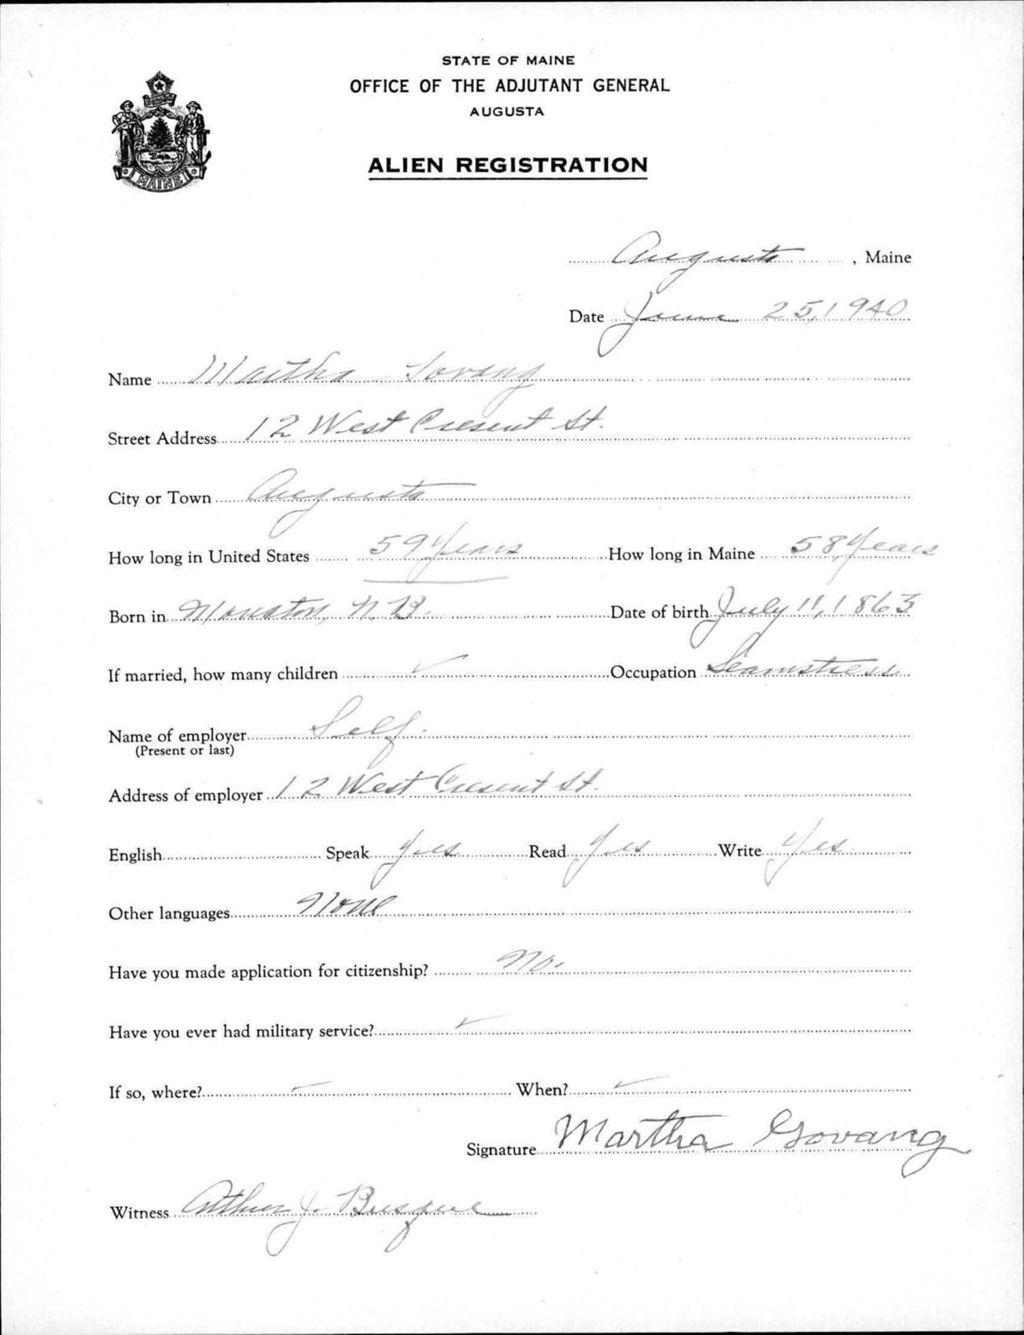 STATE OF MAINE
OFFICE OF THE ADJUTANT GENERAL
AUGUSTA
MAINE
ALIEN REGISTRATION
Augusta, Maine
Date June 25, 1940
Name Martha Govang
Street Address 12 West Cresent St.
City or Town Augusta
How long in United States 59 Years How long in Maine 58 Years
Born in N.B. Date of birth July 11, 1863
If married, how many children ✓ Occupation Seamstress
Name of employer Self.
(Present or last)
Address of employer 12 West Cresent St.
English Speak Yes Read Yes Write Yes
Other languages None
Have you made application for citizenship? No.
Have you ever had military service? ✓
If so, where? ✓ When? ✓
Signature Martha Govang
Witness Arthur J.